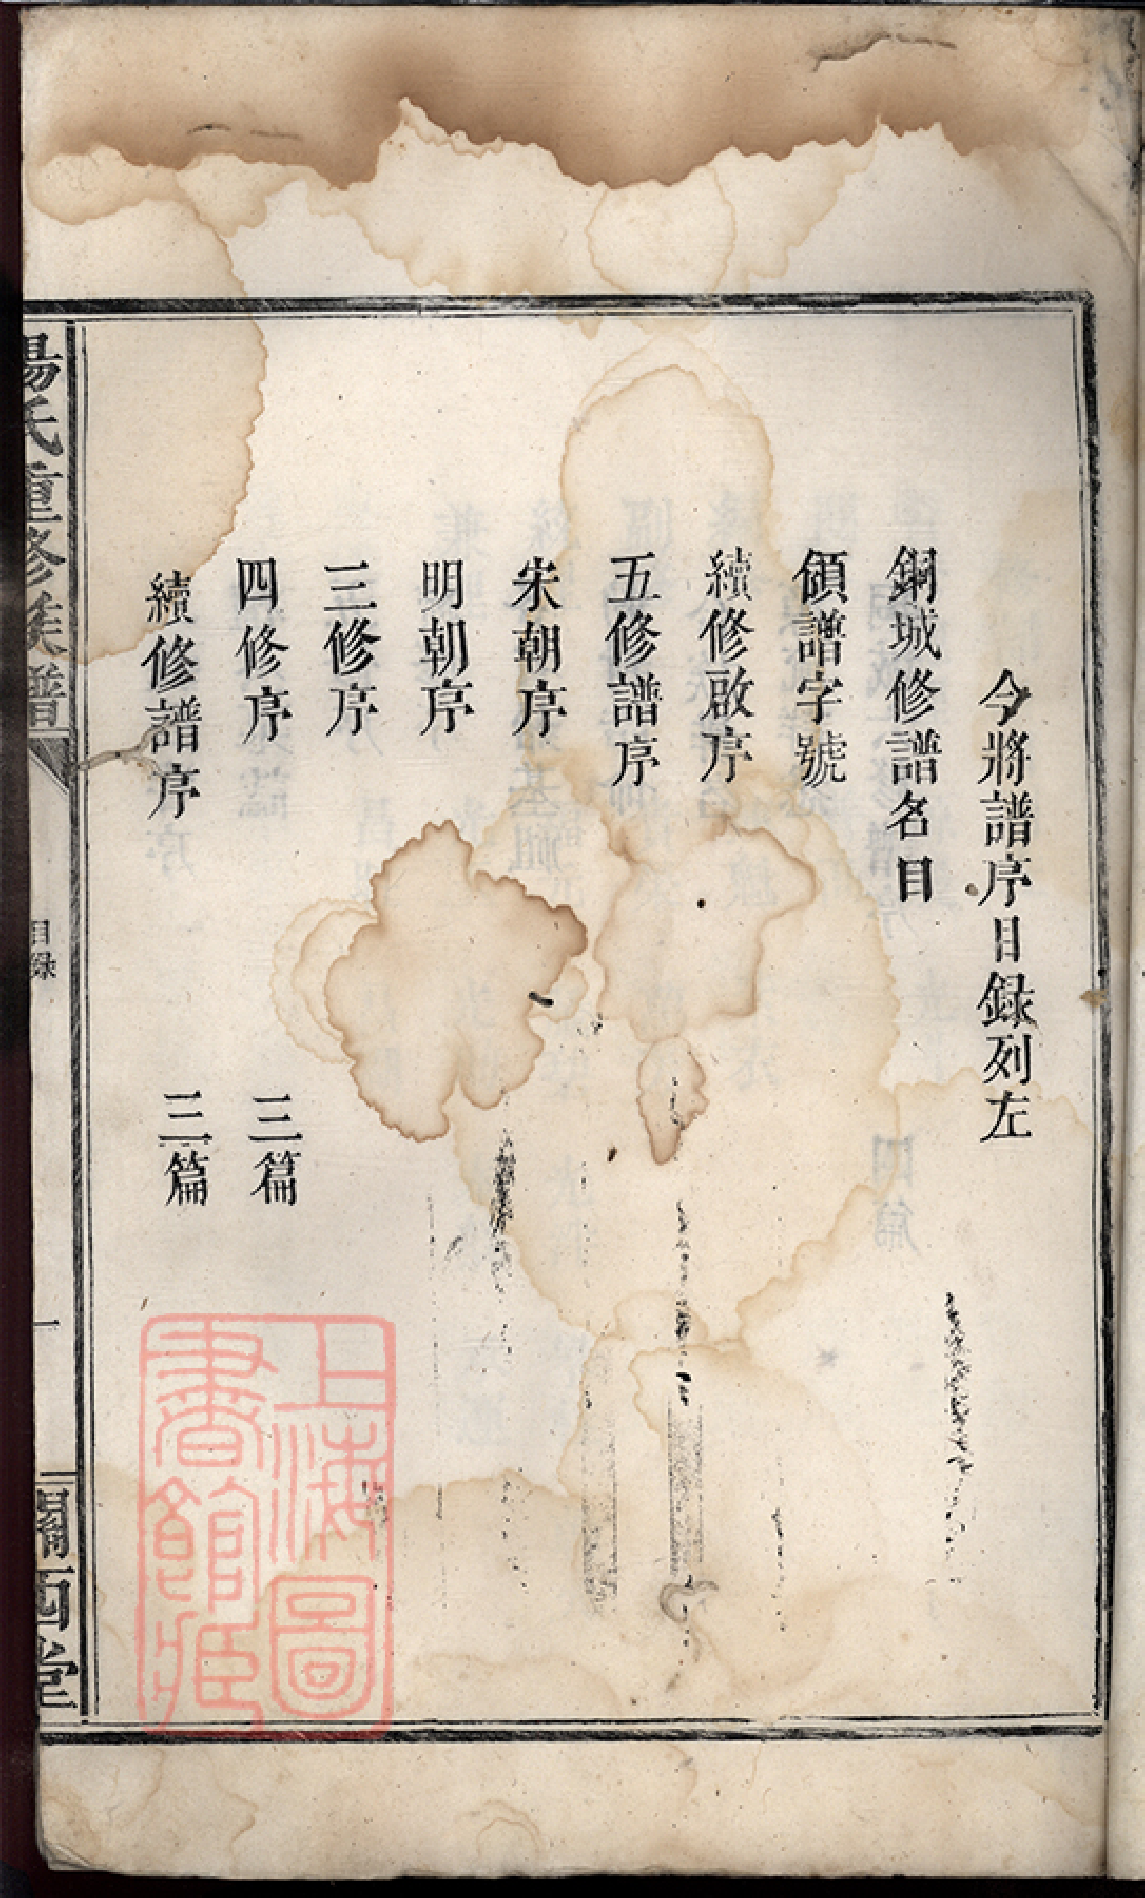 今將譜序目録列左
銅城修譜名目
領譜字號
續修啟序
五修譜序
宋朝序
明朝序
三修序
四修序 三篇
續修譜序 三篇
氏重修族譜
目録
一
關西堂
上海圖書館藏